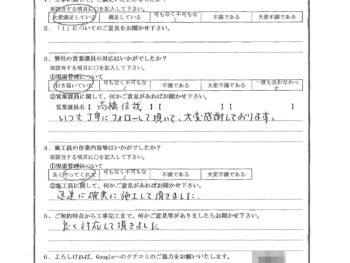 ※該当する項目に○を記入して下さい。
大変満足している 満足している 可もなく不可もなく 不満である 大変不満である
2．「1」についてのご意見をお聞かせ下さい。
3．弊社の営業議員の対応はいかがでしたか？
※該当する項目に○を記入して下さい。
①現場管理について
行き届いていた 可もなく不可もなく 不満である 大変不満である 一度も会わなかった
②営業議員に関して、何かご意見があればお聞かせ下さい。
営業議員名【 高橋信哉 】【 】
いつも丁寧にフォローして頂いて、大変感謝しております。
4．施工員の作業内容等はいかがでしたか？
※該当する項目に○を記入して下さい。
①現場管理について
良くやってくれた 可もなく不可もなく 不満である 大変不満である
②施工員に関して、何かご意見があればお聞かせ下さい。
迅速に確実に施工して頂きました。
5．ご契約時点から工事完工まで、何かご意見等がありましたらお聞かせ下さい。
良く対応して頂きました
6．よろしければ、Googleへのクチコミのご協力をお願いいたします。